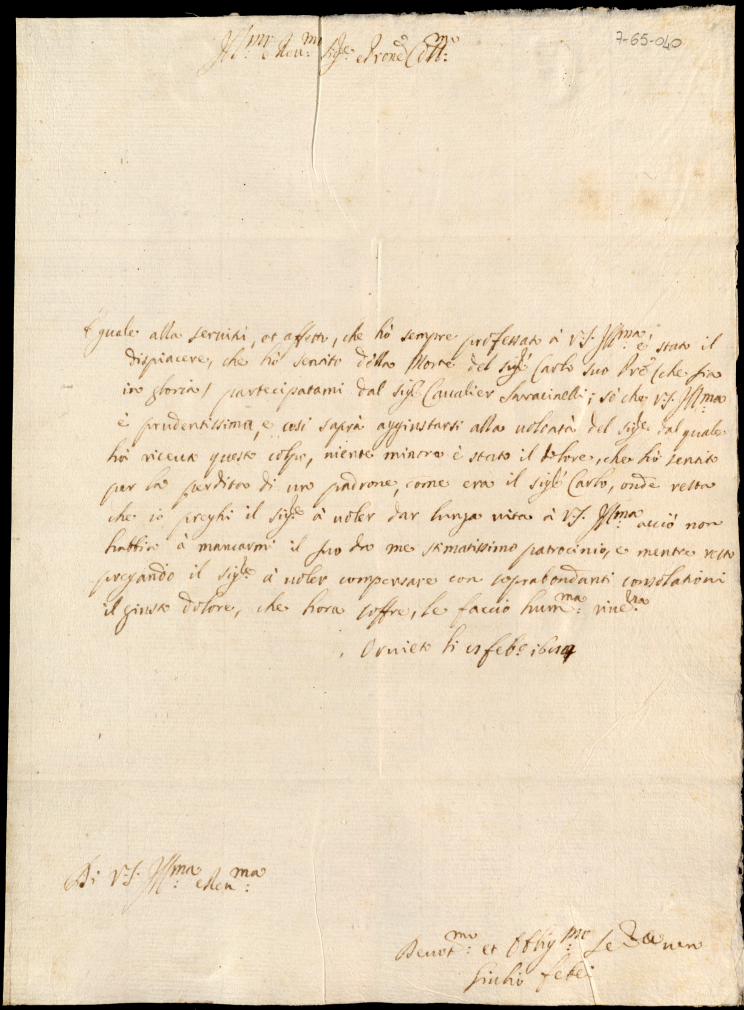 7-65-040
Ill.mo e Reu.mo Sig.re e Prone Coll.mo
Eguale alla seruitù, et affetto, che hò sempre professato à V.S. Ill.ma, è stato il
dispiacere, che hò sentito della Morte del Sig.r Carlo suo Pre (che sia
in gloria) partecipatami dal Sig.r Caualier Saracinelli; sò che V.S. Ill.ma
è prudentissima, e così saprà aggiustarsi alla uolontà del Sig.re dal quale
hà riceuto questo colpo, niente minore è stato il dolore, che hò sentito
per la perdita di un padrone, come era il Sig.r Carlo, onde resta
che io preghi il Sig.re à uoler dar lunga uita à V.S. Ill.ma acciò non
habbia à mancarmi il suo da me stimatissimo patrocinio, e mentre resto
pregando il Sig.re à uoler compensare con soprabondanti consolationi
il giusto dolore, che hora soffre, le faccio hum.ma riue.za
Oruieto li feb.o
Di V.S. Ill.ma e Reu.ma
Deuot.mo et Oblig.mo Se uero
Giulio Febei